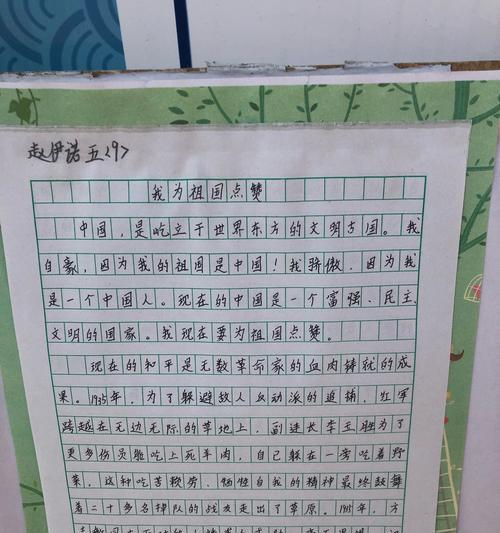 赵伊诺 五<9>
我为祖国点赞
中国，是屹立于世界东方的文明古国。我
自豪，因为我的祖国是中国！我骄傲，因为我
是一个中国人。现在的中国是一个富强、民主、
文明的国家。我现在要为祖国点赞。
现在的和平是无数革命家的血肉铸就的成
果。1935年，为了躲避敌人反动派的追捕，红军
跨越在无边无际的草地上，副连长李玉胜为了
更多伤员能吃上死羊肉，自己躲在一旁吃着野
菜，这种吃苦赖劳、牺牲自我的精神最终鼓舞
着二十多名掉队的战友走出了草原。1935年，方